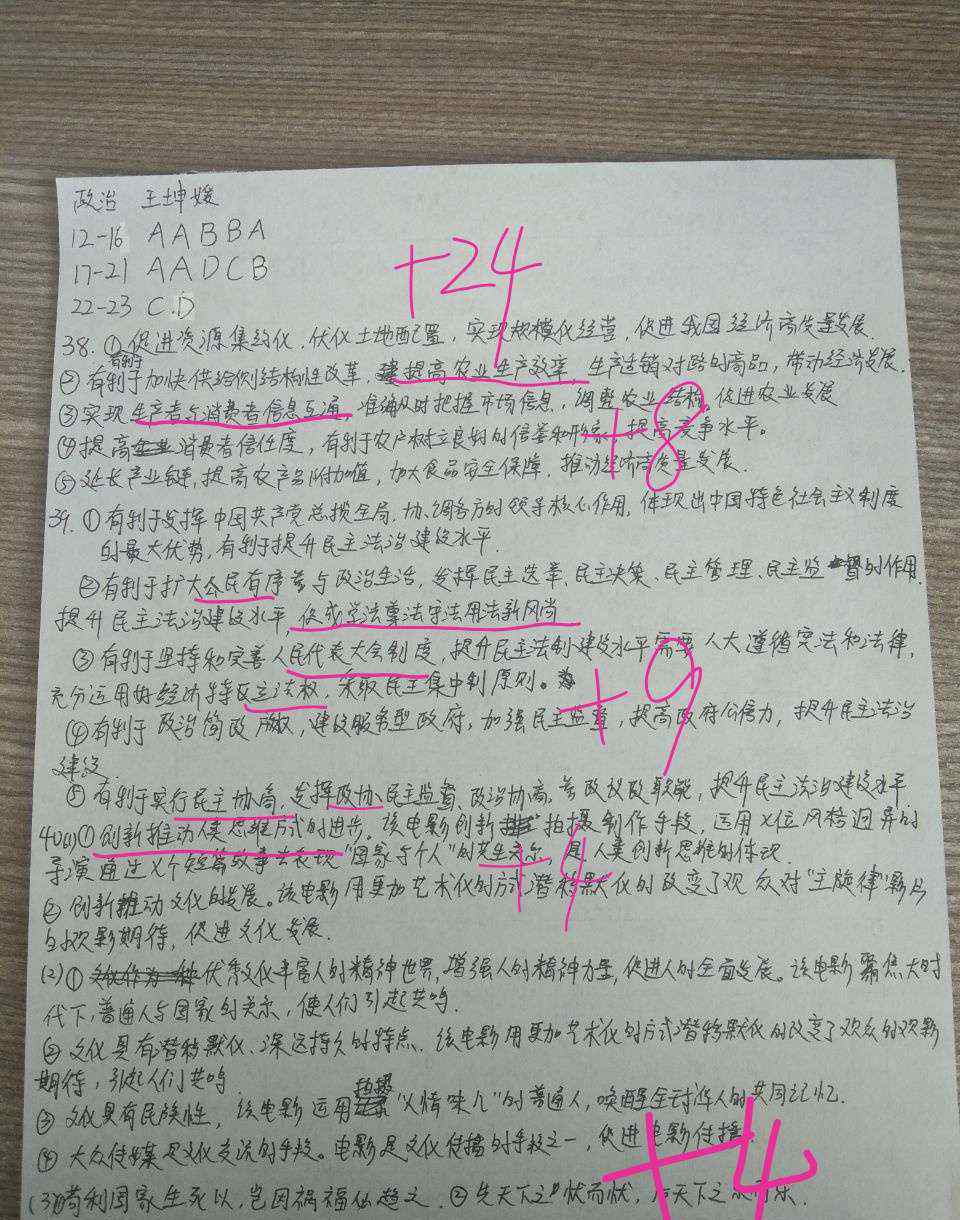 政治 王坤媛
12-16 AABBA
17-21 AADCB
22-23 C.D
+24
38.①促进资源集约化、优化土地配置,实现规模化经营,促进我国经济高质量发展.
②有利于加快供给侧结构性改革,提高农业生产效率,生产适销对路的商品,带动经济发展.
③实现生产者与消费者信息互通,准确及时把握市场信息,调整农业结构,促进农业发展
④提高消费者信任度,有利于农户树立良好的信誉和形象,提高竞争水平。
+8
⑤延长产业链,提高农产品附加值,加大食品安全保障,推动经济高质量发展.
39.①有利于发挥中国共产党总揽全局、协调各方的领导核心作用,体现出中国特色社会主义制度
的最大优势,有利于提升民主法治建设水平.
②有利于扩大公民有序参与政治生活,发挥民主选举、民主决策、民主管理、民主监督的作用
提升民主法治建设水平,促成学法尊法守法用法新风尚
③有利于坚持和完善人民代表大会制度,提升民主法制建设水平需要人大遵循宪法和法律,
充分运用好经济特区立法权,采取民主集中制原则。
+9
④有利于政治简政放权,建设服务型政府,加强民主监督,提高政府公信力,提升民主法治
建设.
⑤有利于实行民主协商,发挥政协民主监督、政治协商、参政议政职能,提升民主法治建设水平
40(1)①创新推动人类思维方式的进步。该电影创新拍摄制作手段,运用X位风格迥异的
导演通过X个短篇故事去表现"国家与个人"的共生关系,是人类创新思维的体现.
+4
②创新推动文化的发展。该电影用更加艺术化的方式潜移默化的改变了观众对"主旋律"影片
的观影期待,促进文化发展.
(2)①优秀文化丰富人的精神世界,增强人的精神力量,促进人的全面发展。该电影聚焦大时
代下,普通人与国家的关系,使人们引起共鸣.
②文化具有潜移默化、深远持久的特点.该电影用更加艺术化的方式潜移默化的改变了观众的观影
期待,引起人们共鸣
③文化具有民族性,该电影运用"人情味儿"的普通人,唤醒全球华人的共同记忆.
④大众传媒是文化交流的手段。电影是文化传播的手段之一,促进电影传播.
+4
(3)①苟利国家生死以,岂因祸福仙趋之.②先天下之忧而忧,后天下之乐而乐.